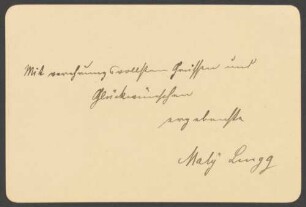 Mit verehrungsvollsten Grüssen und
Glückwünschen
ergebenste
Maly Lingg